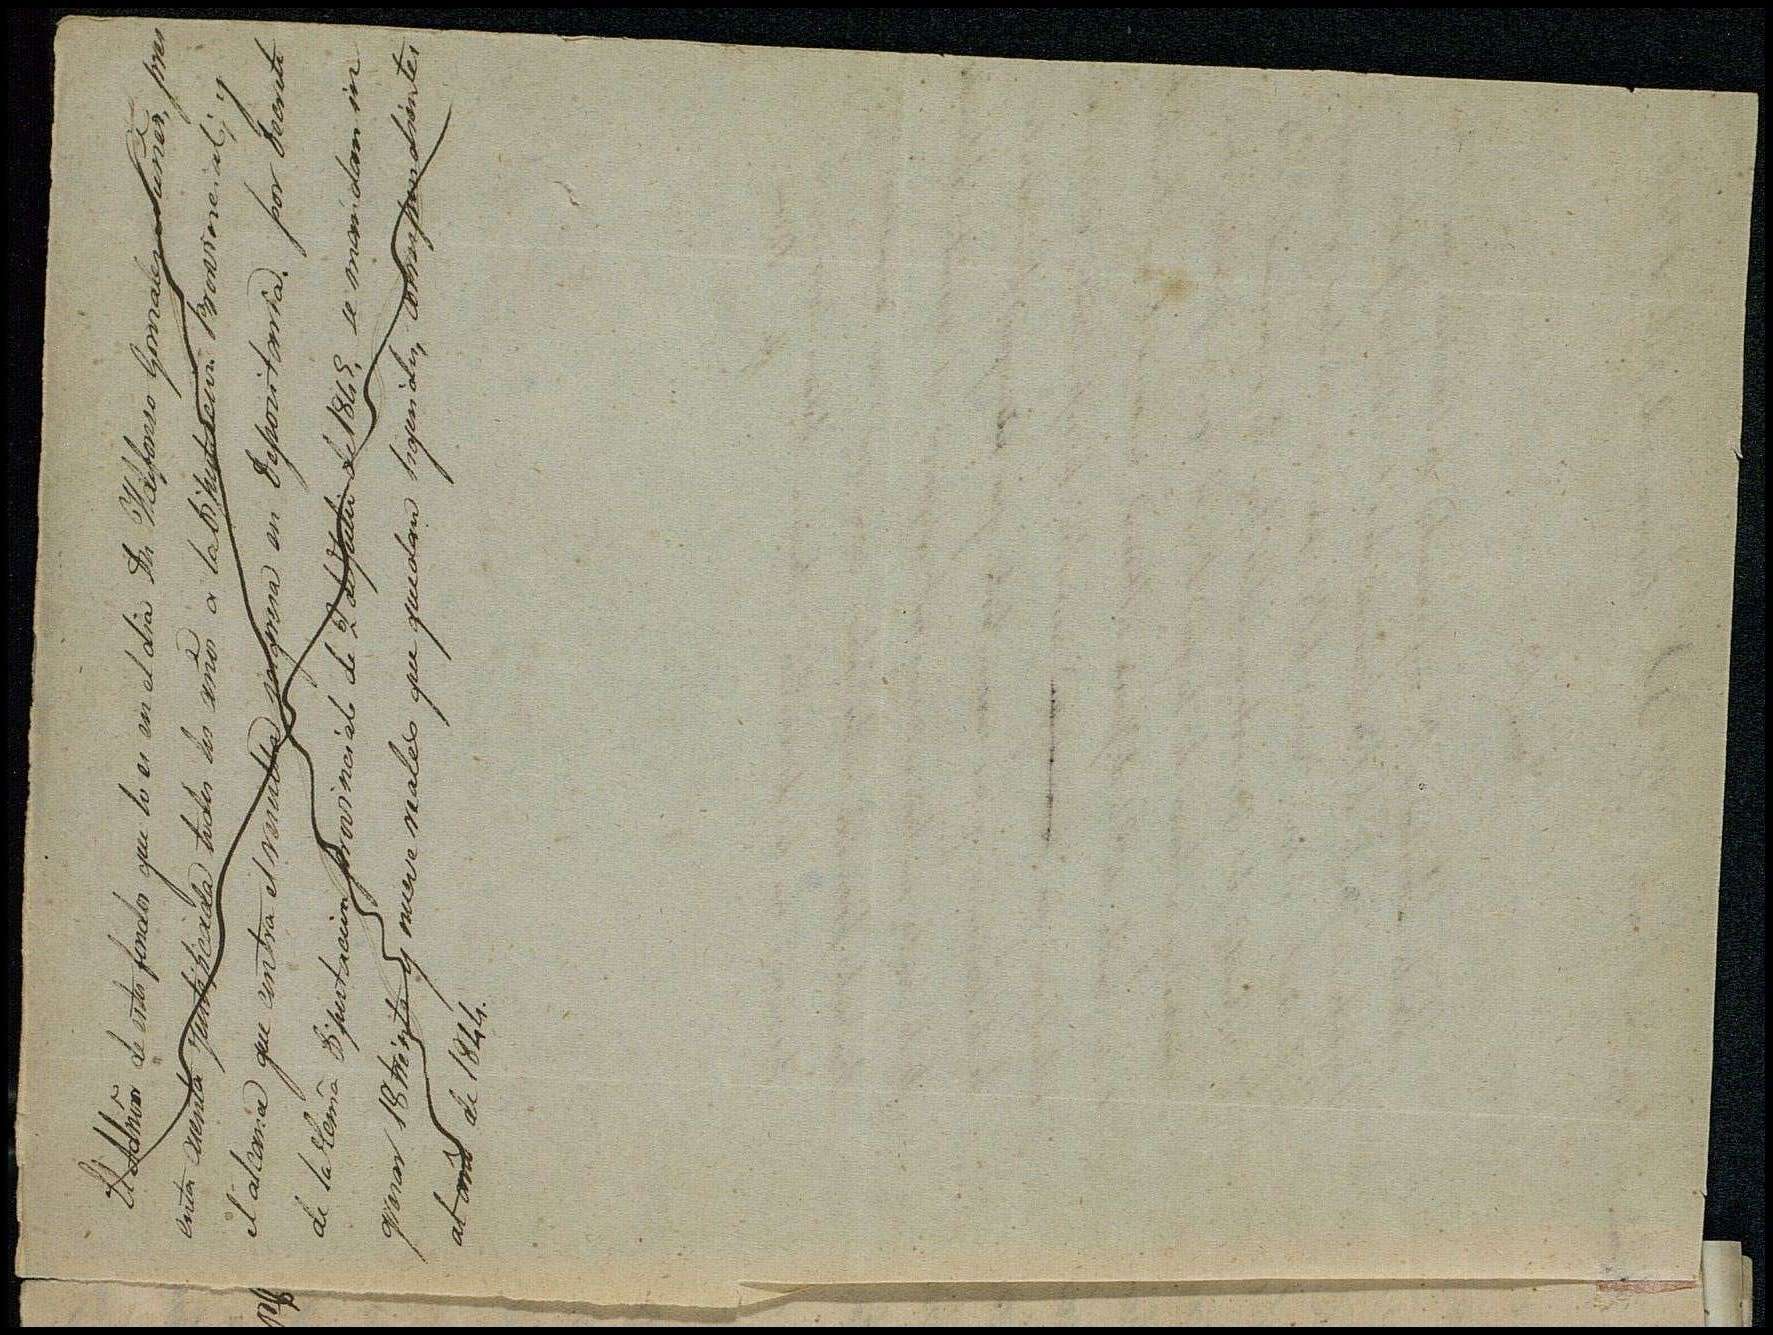 El Admõr de estos fondos que lo es en el dia Dn Yldefonso Gonzalez
enta cuenta justificada todos los años a la Diputacion Provincial, y
el alcance que contra el resulta ingresa en Depositaria. por Decreto
de la Excmã Diputacion provincial de 2 de Julio de 1845, se mandan in
gresar 18 treinta y nueve reales que quedan ingeridos, correspondientes
al año de 1844.